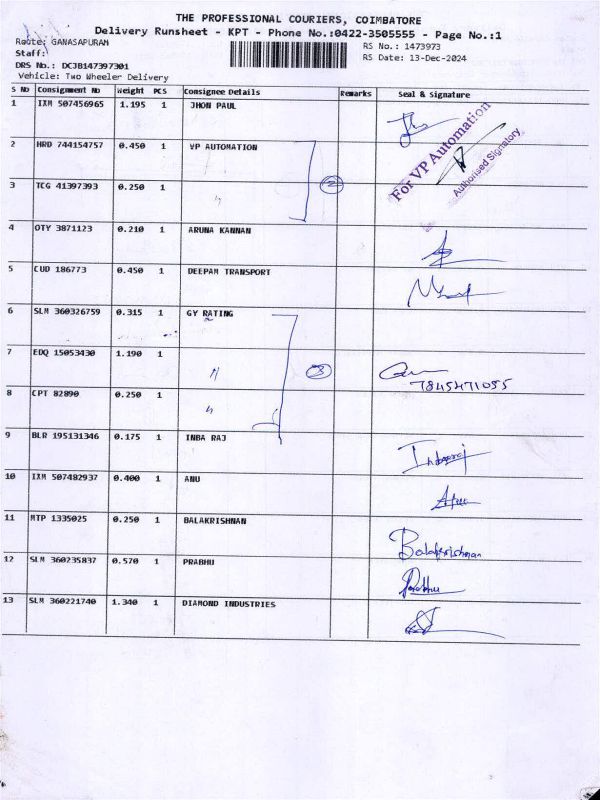 THE PROFESSIONAL COURIERS, COIMBATORE
Delivery Runsheet - KPT - Phone No.:0422-3505555 - Page No.:1
Route: GANASAPURAM
Staff:
DRS No.: DCJB147397301
Vehicle: Two Wheeler Delivery
RS No.: 1473973
RS Date: 13-Dec-2024
S No Consignment No Weight PCS Consignee Details Remarks Seal & Signature
1 IXM 507456965 1.195 1 JHON PAUL
2 HRD 744154757 0.450 1 VP AUTOMATION
For VP Automation
Authorised Signatory
3 TCG 41397393 0.250 1 〃
2
4 OTY 3871123 0.210 1 ARUNA KANNAN
5 CUD 186773 0.450 1 DEEPAM TRANSPORT
6 SLM 360326759 0.315 1 GY RATING
7 EDQ 15053430 1.190 1 〃
3
7845471055
8 CPT 82890 0.250 1 〃
9 BLR 195131346 0.175 1 INBA RAJ
Inbaraj
10 IXM 507482937 0.400 1 ANU
11 MTP 1335025 0.250 1 BALAKRISHNAN
Balakrishnan
12 SLM 360235837 0.570 1 PRABHU
Prabhu
13 SLM 360221740 1.340 1 DIAMOND INDUSTRIES